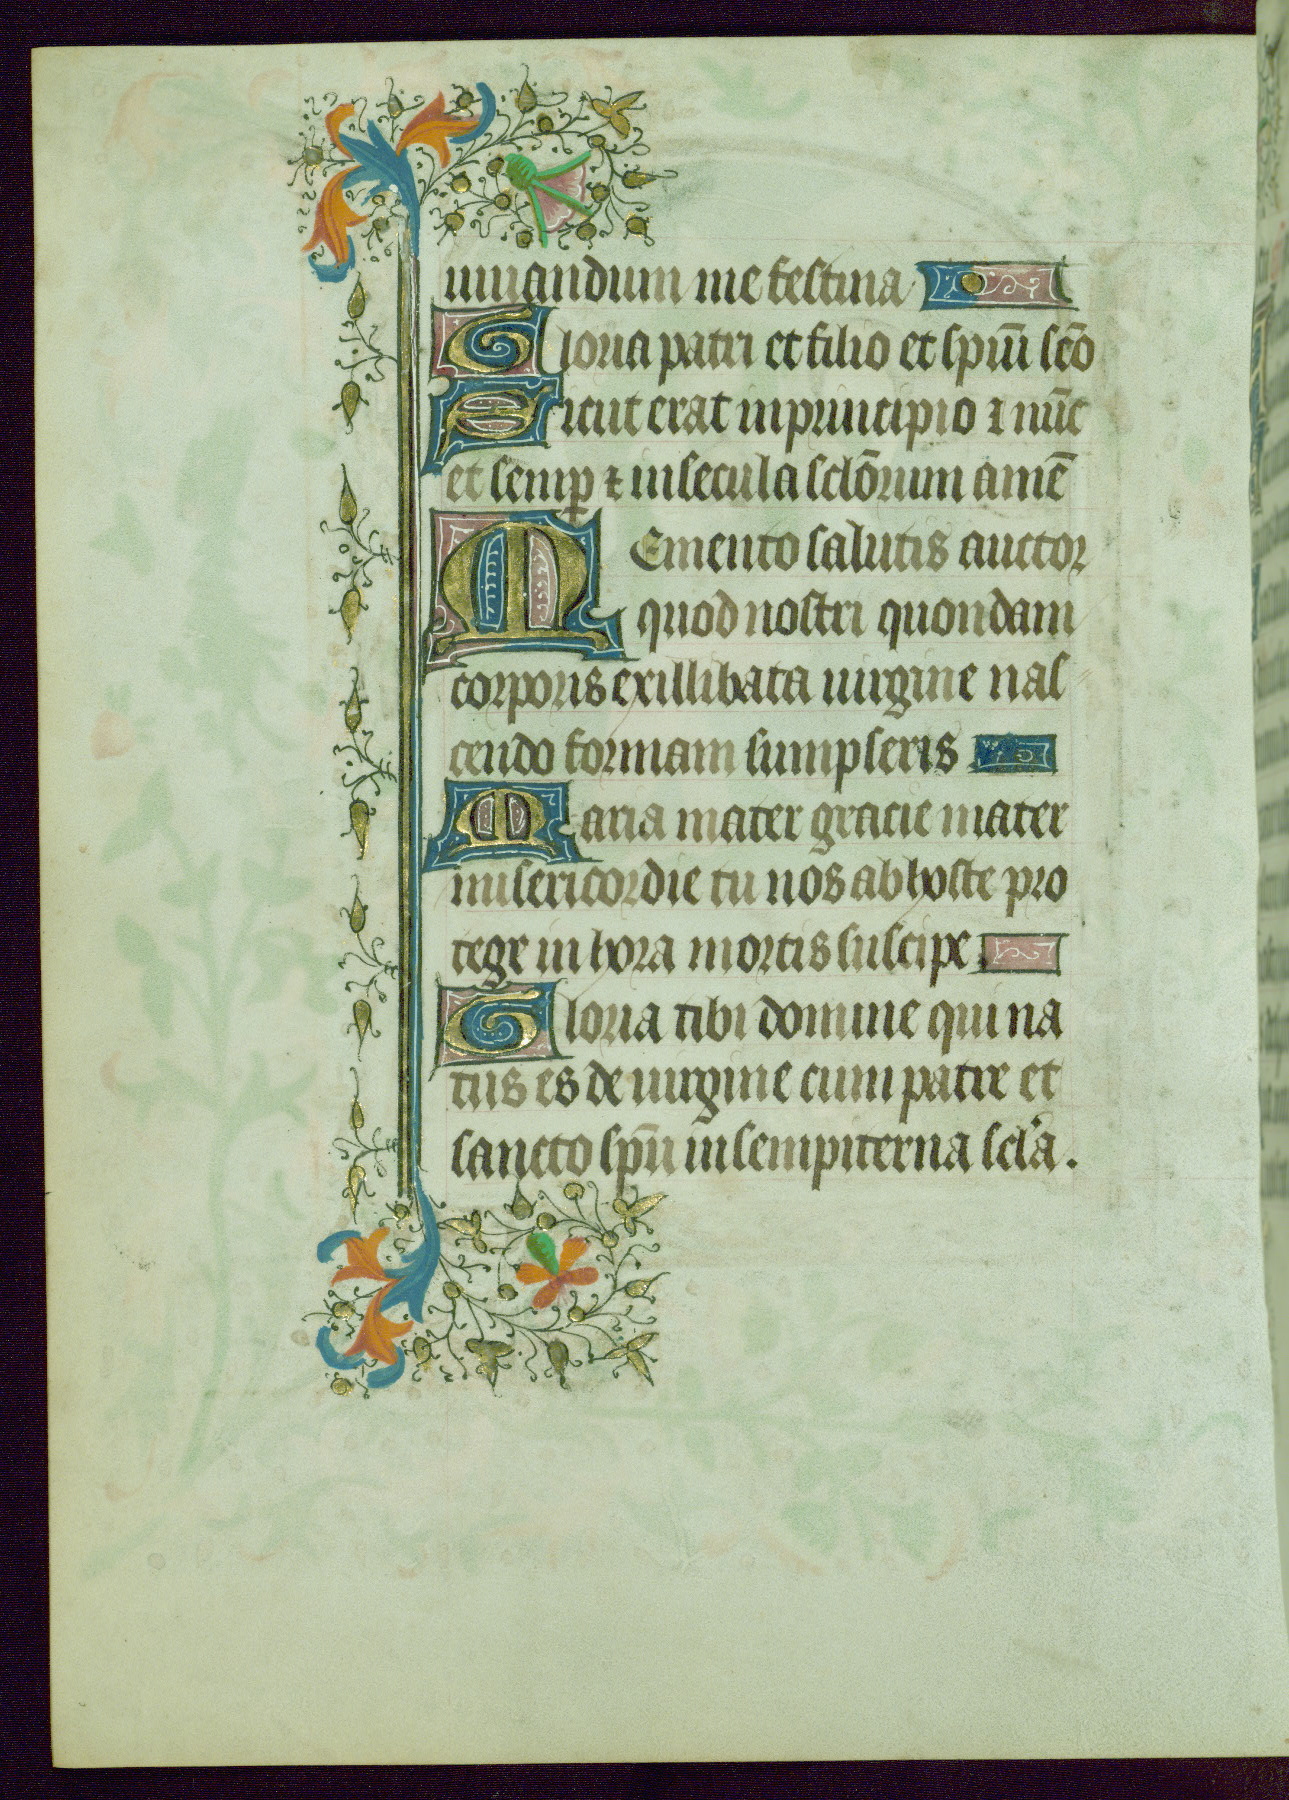 iuuandum me festina
Gloria patri et filio et spiũi sc̃o
Sicut erat in principio ⁊ nũc
et semꝑ ⁊ in secula sclõrum amẽ
Memento salutis auctor
quod nostri quondam
corporis ex illibata uirgine nas
cendo formam sumpseris
Maria mater gracie mater
misericordie tu nos ab hoste pro
tege in hora mortis suscipe
Gloria tibi domine qui na
tus es de uirgine cum patre et
sancto sp̃u in sempiterna scl̃a.